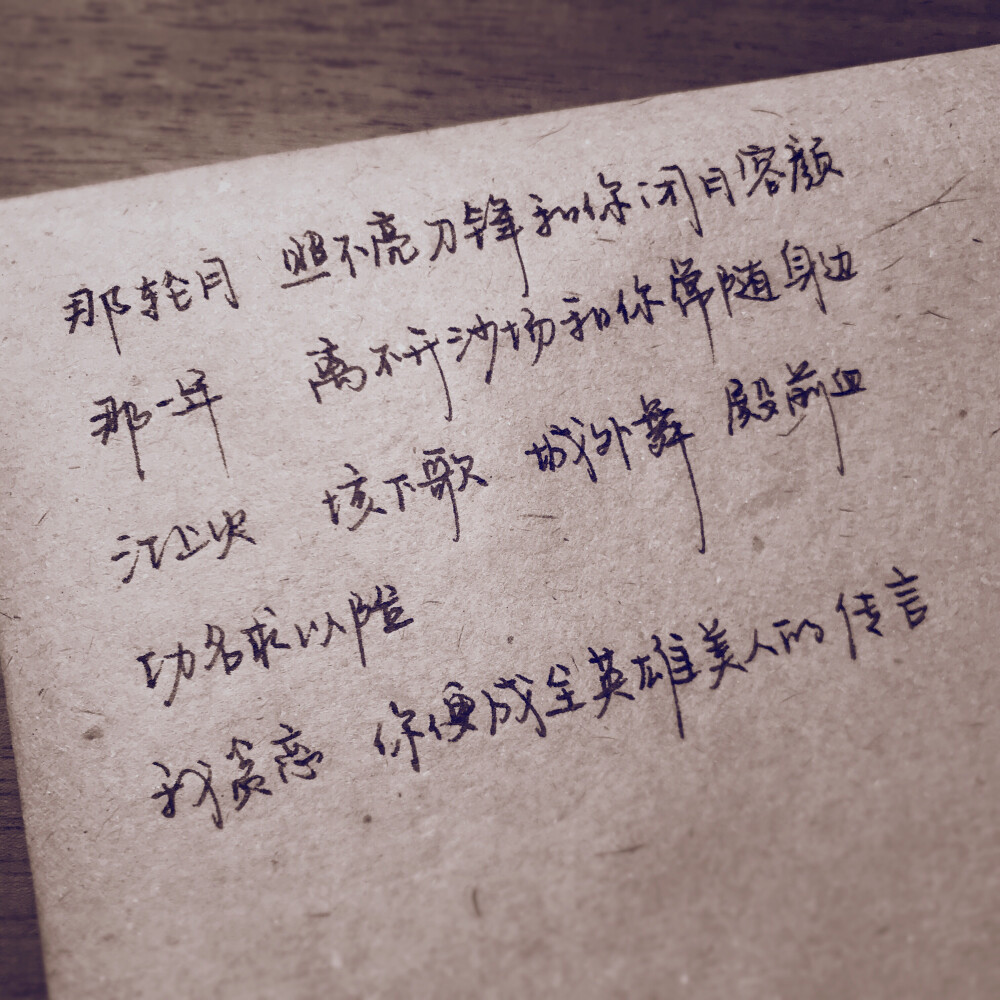 那轮月 照不亮刀锋和你闭月容颜
那一年 离不开沙场和你常随身边
江上火 垓下歌 城外舞 殿前血
功名求以险
我贪恋 你便成全英雄美人的传言